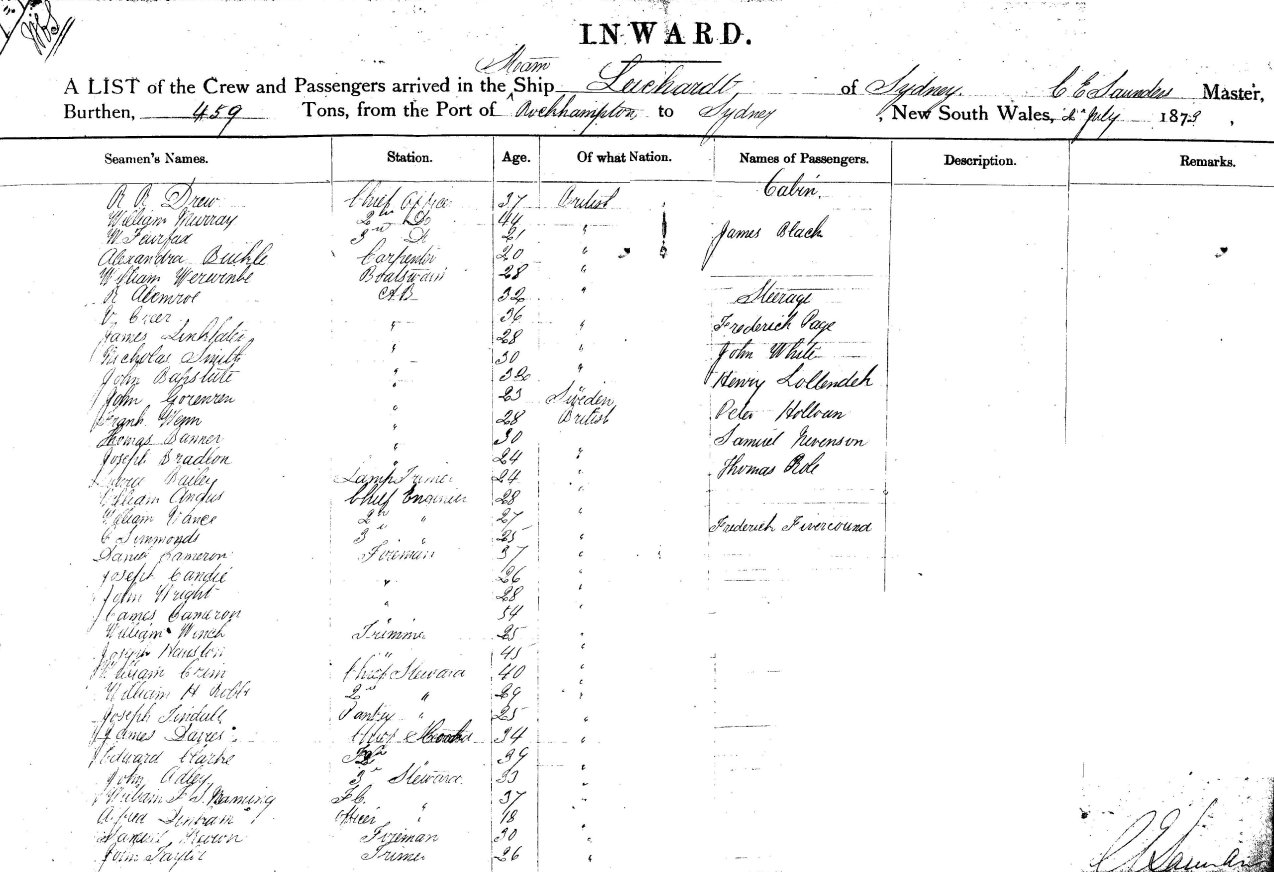 INWARD.
Steam
A LIST of the Crew and Passengers arrived in the Ship Leichardt of Sydney C E Saunders Master,
Burthen, 459 Tons, from the Port of Rockhampton to Sydney, New South Wales, July 1873,
Seamen's Names. Station. Age. Of what Nation. Names of Passengers. Description. Remarks.
Cabin.
R R Drew Chief Office 37 British
William Murray 2nd Do 44 "
W Fairfax 3rd Do 21 " James Black
Alexandra Buckle Carpenter 20 "
William Boatswain 28 "
R A.B. 32 " Steerage
36 Frederick Page
James " 28 "
Nicholas Smith " 30 " John White
John " 32 " Henry
John " 23 Sweden
Frank Wynn " 28 British Peter
Thomas Banner " 30 " Samuel Nevenson
Joseph " 24 " Thomas
Bailey Lamp Trimer 24 "
William Angus Chief Engineer 28 "
William Vance 2nd " 27 " Frederick
C Simmonds 3rd " 25 "
Daniel Cameron Fireman 37 "
Joseph Candie " 26 "
John Wright " 28 "
James Cameron " 54 "
William Winch Trimmer 25 "
Joseph " 45 "
William Crim Chief Steward 40 "
William H Robb 2nd " 29 "
Joseph Tindall Pantry " 25 "
James Davies Chief 34 "
Edward Clarke 39 "
John Adley 3rd Steward 33 "
William F. C. " 37 "
Alfred Denham Officer " 18 "
Fireman 30 "
John Taylor Trimer 26 "